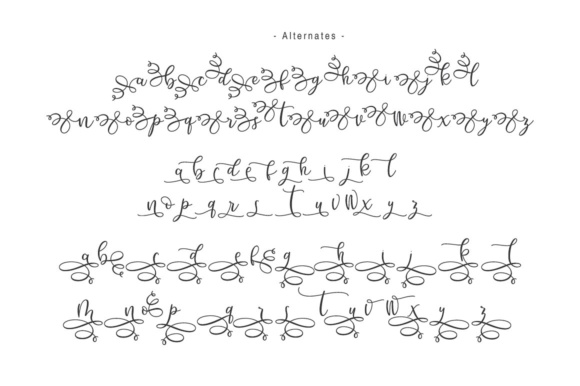 - Alternates -
a b c d e f g h i j k l
n o p q r s t u v w x y z
a b c d e f g h i j k l
n o p q r s t u v w x y z
a b c d e f g h i j k l
m n o p q r s t u v w x y z